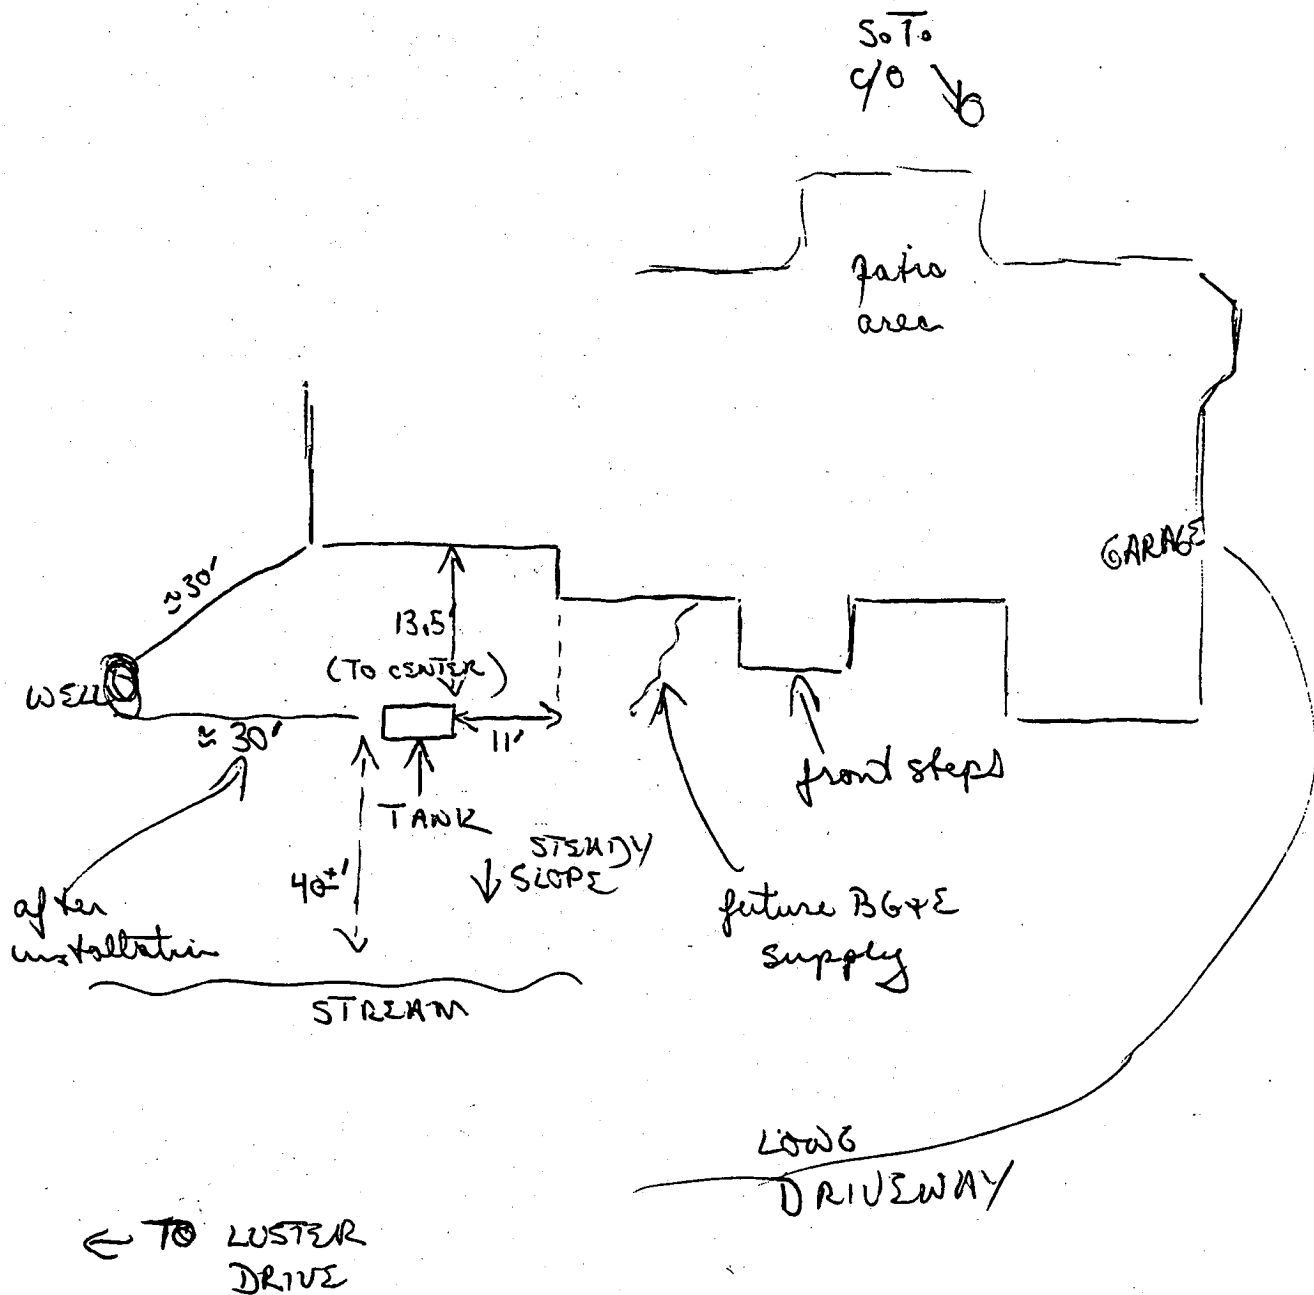 S.T.
C/O
patio
area
GARAGE
≈30'
13.5'
(TO CENTER)
WELL
≈ 30'
11'
front steps
TANK
STEADY
SLOPE
40±'
after
installation
future BG+E
supply
STREAM
LONG
DRIVEWAY
← TO LUSTER
DRIVE